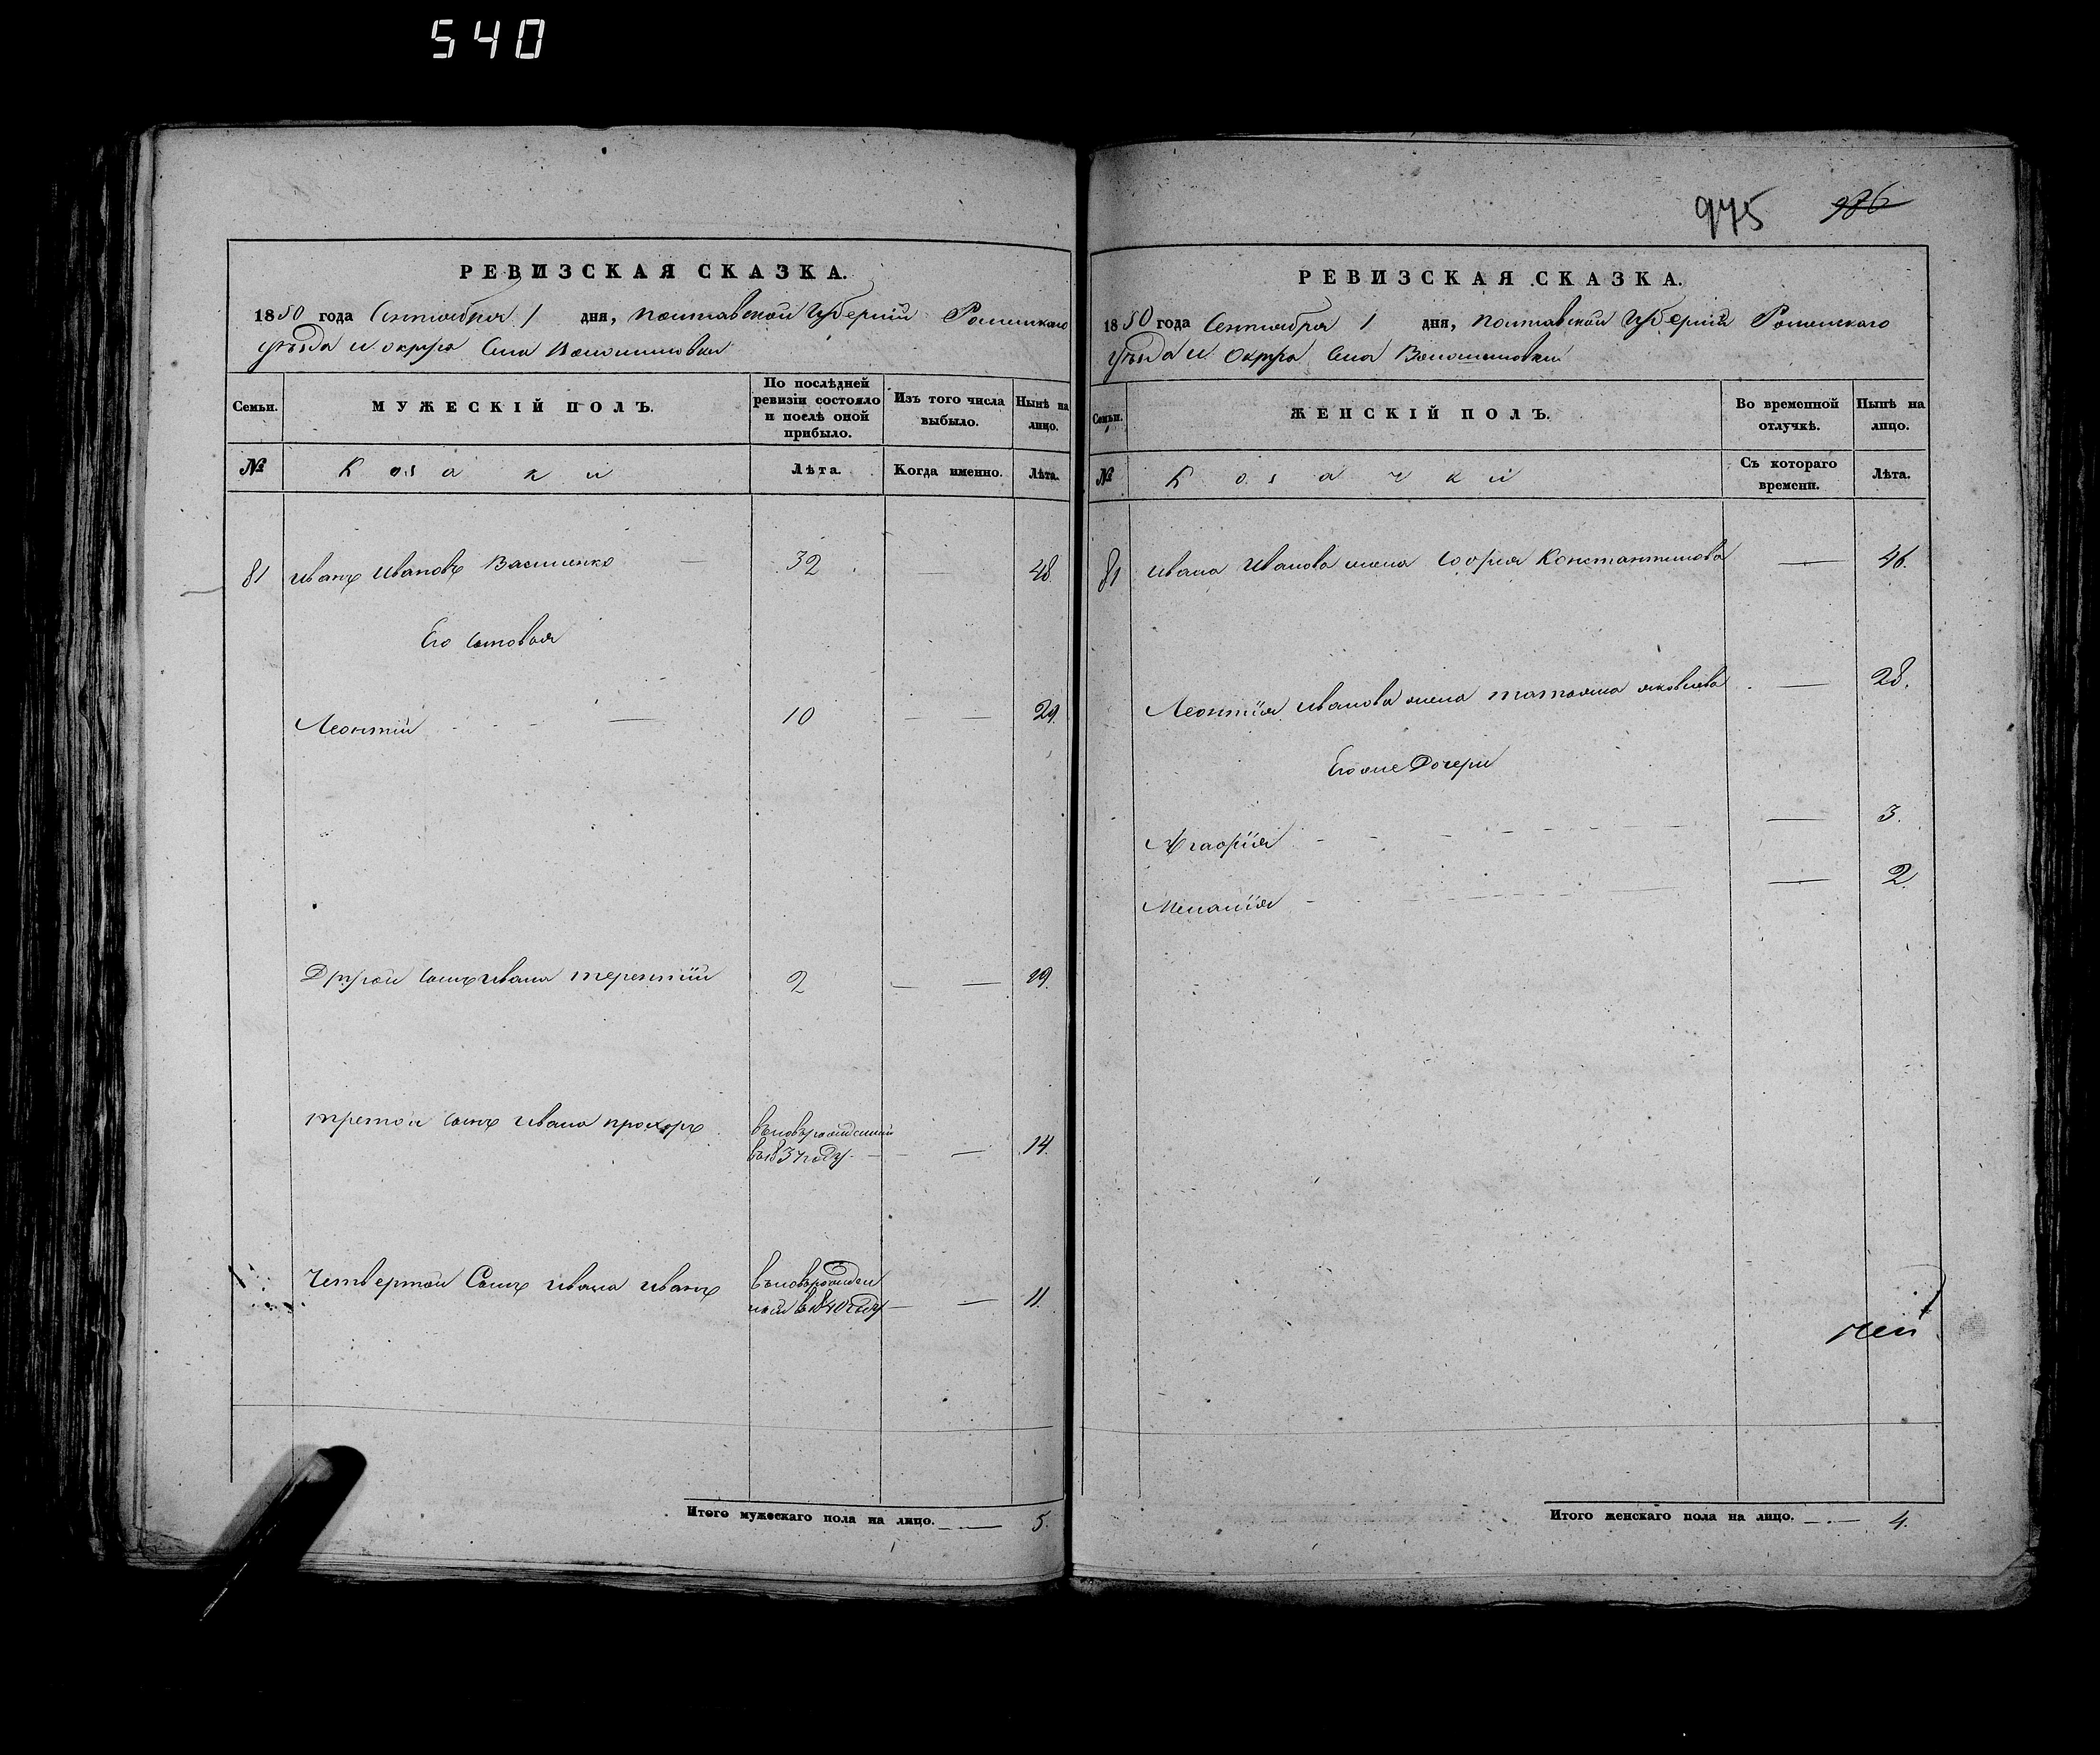 540
975 986
РЕВИЗСКАЯ СКАЗКА.
1850 года Сентября 1 дня, Полтавской Губерніи Роменскаго
уѣзда и округа Села Волошиновки
Семьи. МУЖЕСКІЙ ПОЛЪ. По послѣдней ревизіи состояло и послѣ оной прибыло. Изъ того числа выбыло. Нынѣ на лицо.
№ Козаки Лѣта. Когда именно. Лѣта.
81 Иванъ Ивановъ Василенко — 32 48
Его сыновья
Леонтій — 10 — — 29.
Другой сынъ Ивана Терентій 2 — — 19.
третой сынъ Ивана Прохоръ вновърожденный
въ1837году — — 14.
Четвертой Сынъ Ивана Иванъ вновърожден
ный въ1840году — — 11.
Итого мужескаго пола на лицо. — 5.
РЕВИЗСКАЯ СКАЗКА.
1850 года Сентября 1 дня, Полтавской Губерніи Роменскаго
уѣзда и Округа Села Волошиновки
Семьи. ЖЕНСКІЙ ПОЛЪ. Во временной отлучкѣ. Нынѣ на лицо.
№ Козачки Съ котораго времени. Лѣта.
81 Ивана Иванова жена Софья Константинова — 46.
Леонтія Иванова жена татьяна яковлева — 28.
Егоже Дочери
Агафія — 3.
Меланія — 2.
Итого женскаго пола на лицо. — 4.